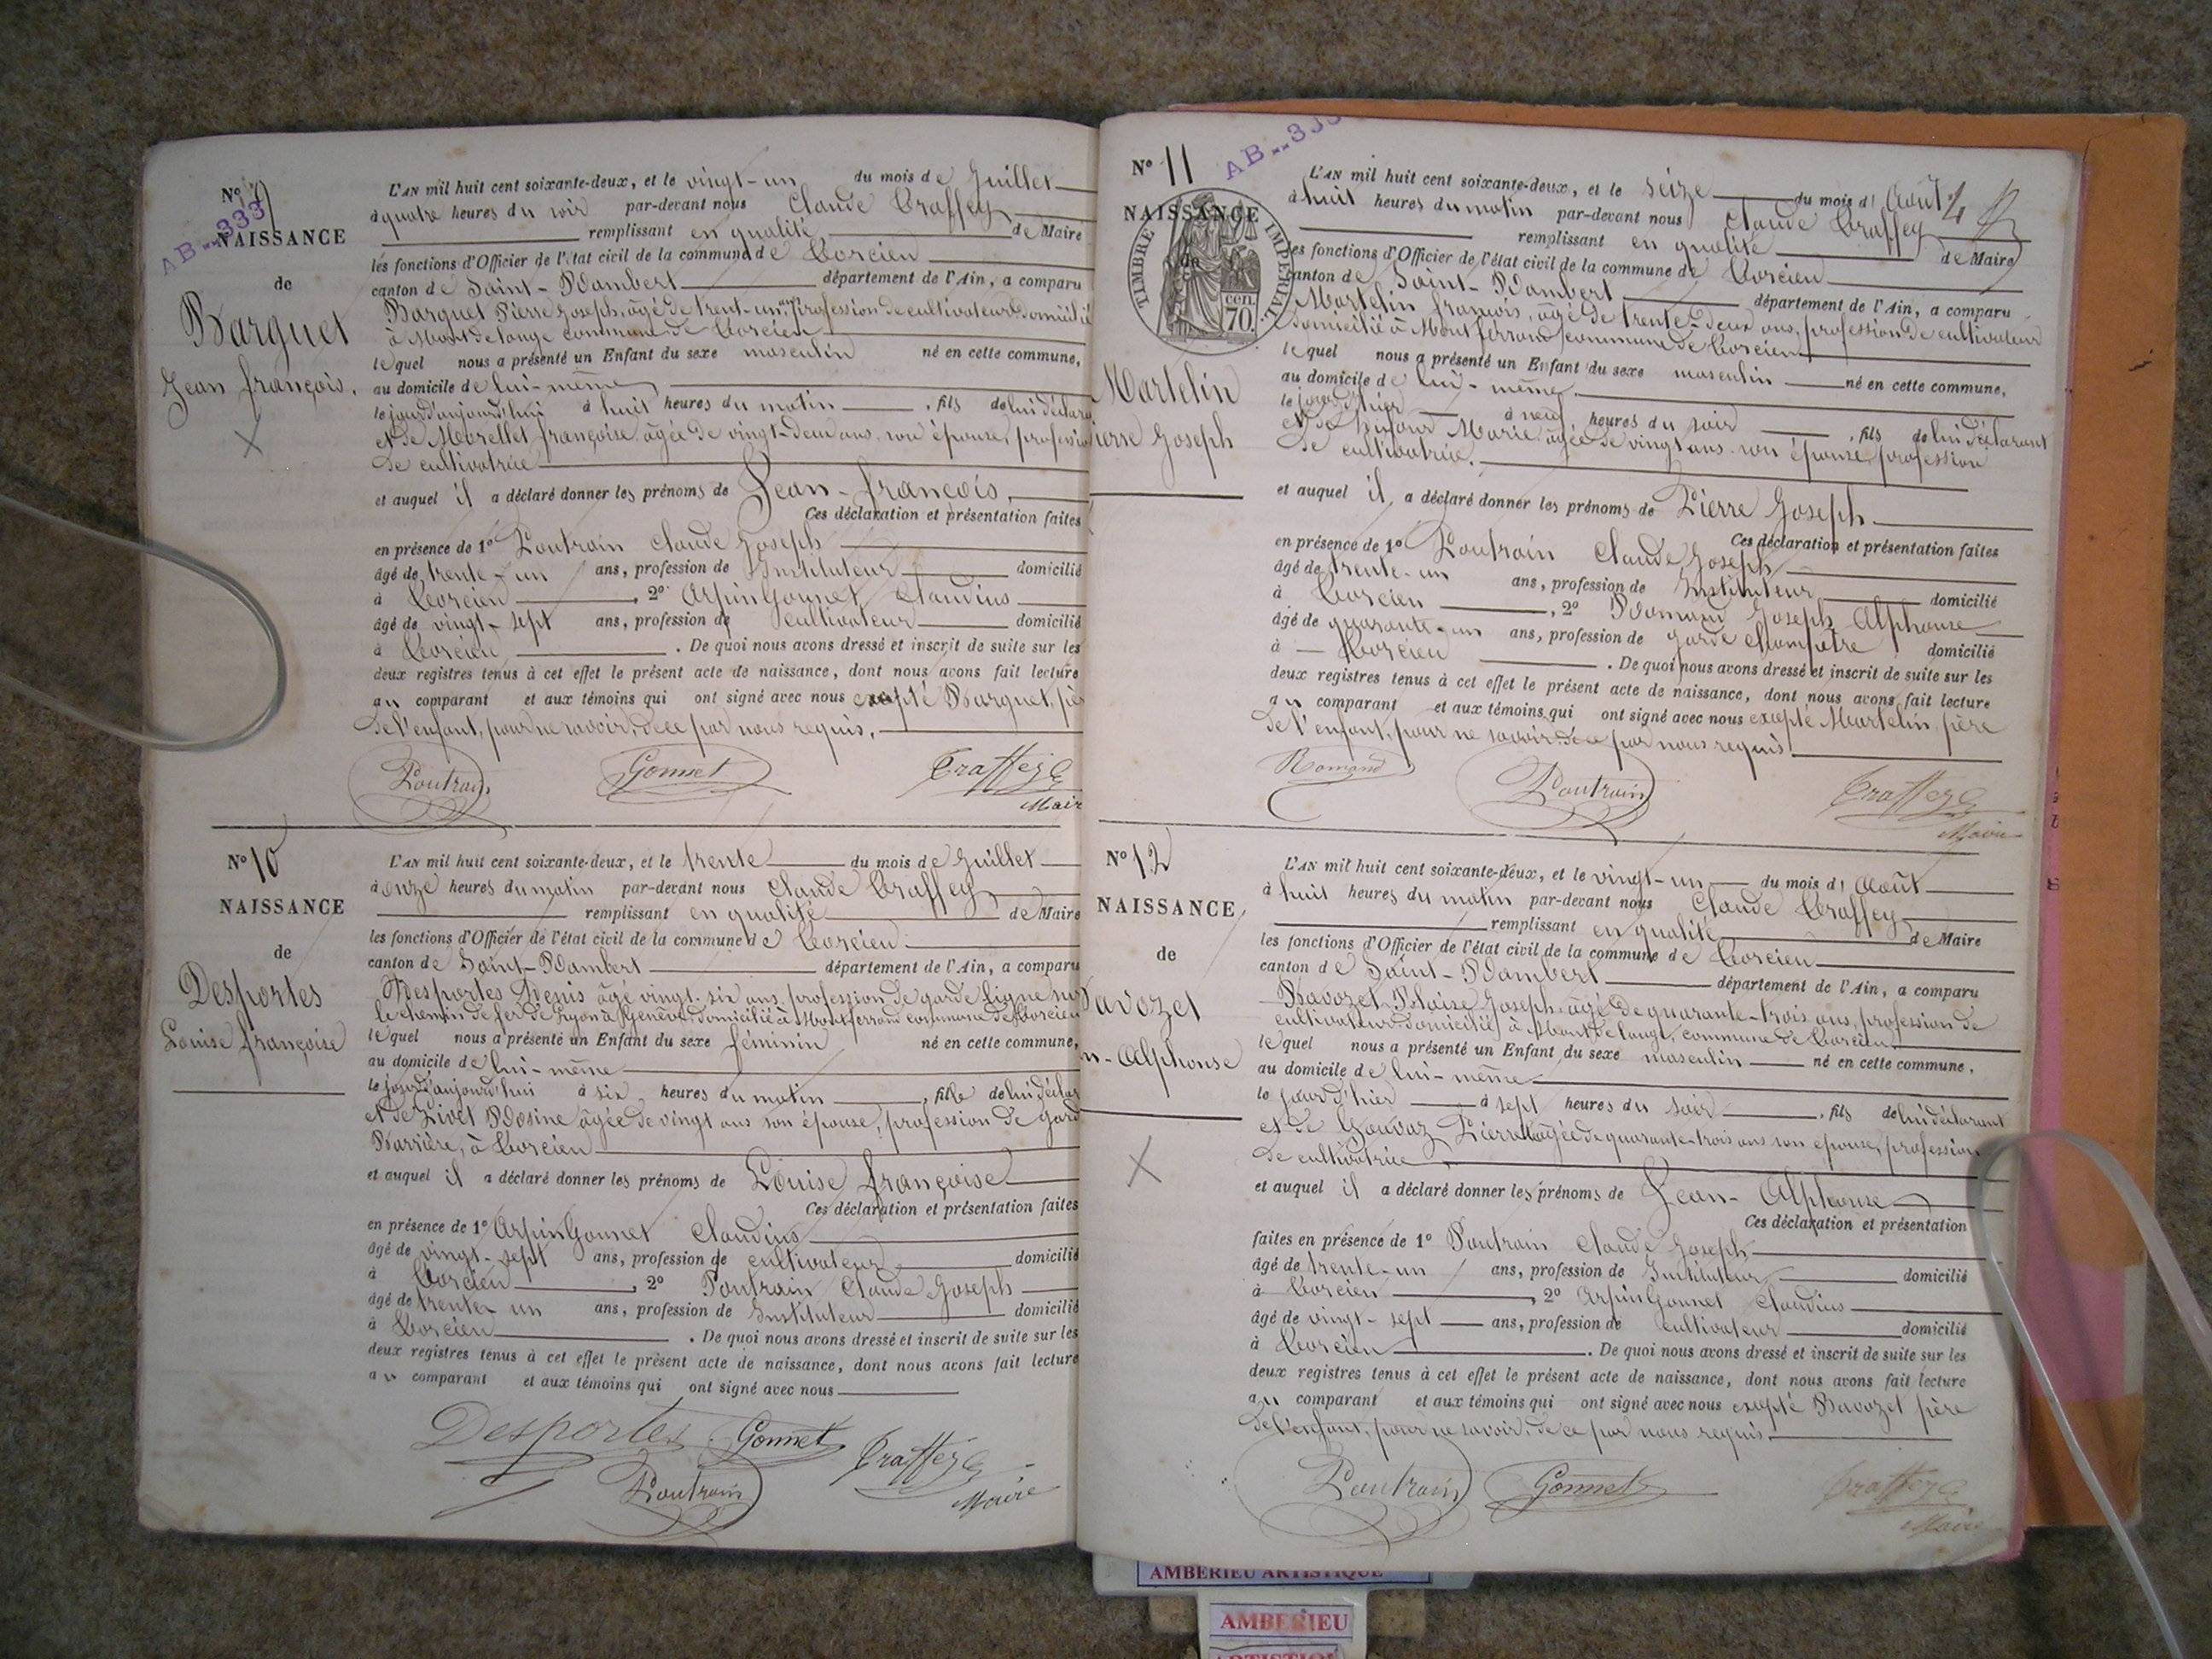 AB..333
N° 9
NAISSANCE
de
Barquet
Jean françois.
L'AN mil huit cent soixante-deux, et le vingt-un du mois de Juillet
à quatre heures du soir par-devant nous Claude Traffey
remplissant en qualité de Maire
les fonctions d'Officier de l'état civil de la commune de Torcieu
canton de Saint-Rambert département de l'Ain, a comparu
Barquet Pierre Joseph, âgé de trent-un ans, profession de cultivateur domicilié
à Mont de lange commune de Torcieu
lequel nous a présenté un Enfant du sexe masculin né en cette commune,
au domicile de lui-même
le jour d'aujourd'hui à huit heures du matin , fils de lui déclara
et de Morellet françoise âgée de vingt-deux ans son épouse, professio
de cultivatrice
et auquel il a déclaré donner les prénoms de Jean-françois.
Ces déclaration et présentation faites
en présence de 1° Poutrain Claude Joseph
âgé de trente-un ans, profession de Instituteur domicilié
à Torcieu , 2° Arpin Gonnet Claudius
âgé de vingt-sept ans, profession de cultivateur domicilié
à Torcieu . De quoi nous avons dressé et inscrit de suite sur les
deux registres tenus à cet effet le présent acte de naissance, dont nous avons fait lecture
au comparant et aux témoins qui ont signé avec nous excepté Barquet, pè
de l'enfant, pour ne savoir, de ce par nous requis.
Poutrain Gonnet Traffey C
Mair
N° 10
NAISSANCE
de
Desportes
Louise françoise
L'AN mil huit cent soixante-deux, et le trente du mois de Juillet
à onze heures du matin par-devant nous Claude Traffey
remplissant en qualité de Maire
les fonctions d'Officier de l'état civil de la commune de Torcieu
canton de Saint-Rambert département de l'Ain, a comparu
Desportes Denis âgé vingt-six ans, profession de garde ligne su
le chemin de fer de Lyon à Genève, domicilié à Montferrand commune de Torcieu
lequel nous a présenté un Enfant du sexe féminin né en cette commune,
au domicile de lui-même
le jour d'aujourd'hui à six heures du matin , fille de lui déclar
et de Livet Rosine âgée de vingt ans son épouse, profession de gard
Barrière, à Torcieu
et auquel il a déclaré donner les prénoms de Louise françoise
Ces déclaration et présentation faites
en présence de 1° Arpin Gonnet Claudius
âgé de vingt-sept ans, profession de cultivateur domicilié
à Torcieu , 2° Poutrain Claude Joseph
âgé de trente un ans, profession de Instituteur domicilié
à Torcieu . De quoi nous avons dressé et inscrit de suite sur les
deux registres tenus à cet effet le présent acte de naissance, dont nous avons fait lecture
au comparant et aux témoins qui ont signé avec nous
Desportes Gonnet Traffey C
Poutrain Maire
AB..333
N° 11
NAISSANCE
de
TIMBRE IMPERIAL
70 cen.
Martelin
ierre Joseph
L'AN mil huit cent soixante-deux, et le seize du mois d' Août
à huit heures du matin par-devant nous Claude Traffey
remplissant en qualité de Maire
les fonctions d'Officier de l'état civil de la commune de Torcieu
canton de Saint-Rambert département de l'Ain, a comparu
Martelin françois, âgé de trente-deux ans, profession de cultivateur
domicilié à Montferrand commune de Torcieu
lequel nous a présenté un Enfant du sexe masculin né en cette commune,
au domicile de lui-même
le jour d'hier à neuf heures du soir , fils de lui déclarant
et de Marie âgée de vingt ans son épouse, profession
de cultivatrice.
et auquel il a déclaré donner les prénoms de Pierre Joseph
Ces déclaration et présentation faites
en présence de 1° Poutrain Claude Joseph
âgé de trente-un ans, profession de Instituteur domicilié
à Torcieu , 2° Romand Joseph Alphonse
âgé de quarante-un ans, profession de garde Champêtre domicilié
à Torcieu . De quoi nous avons dressé et inscrit de suite sur les
deux registres tenus à cet effet le présent acte de naissance, dont nous avons fait lecture
au comparant et aux témoins qui ont signé avec nous excepté Martelin père
de l'enfant, pour ne savoir, de ce par nous requis
Romand Poutrain Traffey C
Maire
N° 12
NAISSANCE
de
avozet
n-Alphonse
L'AN mil huit cent soixante-deux, et le vingt-un du mois d' Août
à huit heures du matin par-devant nous Claude Traffey
remplissant en qualité de Maire
les fonctions d'Officier de l'état civil de la commune de Torcieu
canton de Saint-Rambert département de l'Ain, a comparu
Ravozet Blaise Joseph, âgé de quarante-trois ans, profession de
cultivateur domicilié à Mont de lange, commune de Torcieu
lequel nous a présenté un Enfant du sexe masculin né en cette commune,
au domicile de lui-même
le jour d'hier à sept heures du soir , fils de lui déclarant
et de Gouvaz âgée de quarante-trois ans son épouse, profession
de cultivatrice
et auquel il a déclaré donner les prénoms de Jean-Alphonse
Ces déclaration et présentation
faites en présence de 1° Poutrain Claude Joseph
âgé de trente-un ans, profession de Instituteur domicilié
à Torcieu , 2° Arpin Gonnet Claudius
âgé de vingt-sept ans, profession de cultivateur domicilié
à Torcieu . De quoi nous avons dressé et inscrit de suite sur les
deux registres tenus à cet effet le présent acte de naissance, dont nous avons fait lecture
au comparant et aux témoins qui ont signé avec nous excepté Ravozet père
de l'enfant, pour ne savoir, de ce par nous requis.
Poutrain Gonnet Traffey C
Maire
AMBERIEU ARTISTIQUE
AMBERIEU
ARTISTIQU